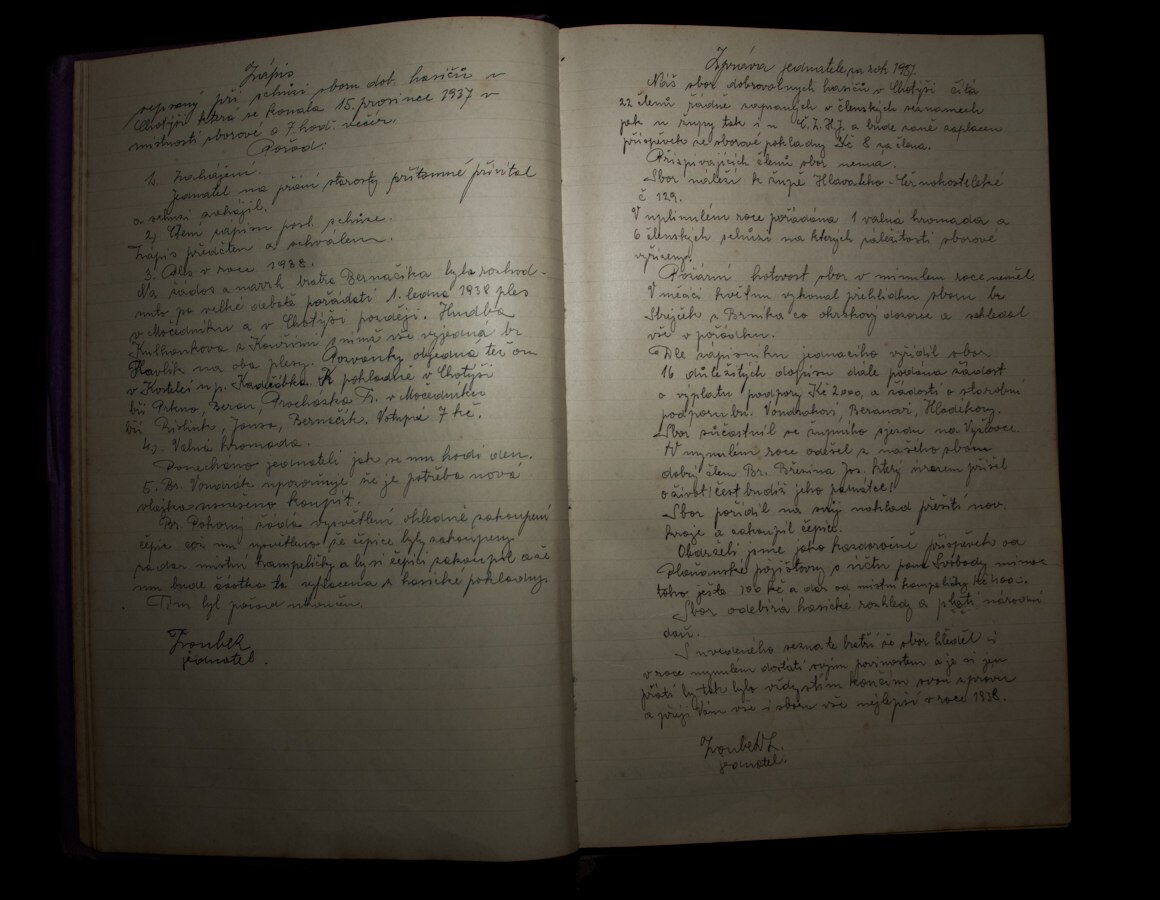 Zápis
sepsaný při schůzi sboru dob. hasičů v
Chotýši která se konala 15. prosince 1937 v
místnosti sborové o 7 hod. večer.
Pořad:
1. Zahájení.
Jednatel na přání starosty přítomné přivítal
a schůzi zahájil.
2) Čtení zápisu posl. schůze.
Zápis předčten a schválen.
3. Ples v roce 1938.
Na žádost a návrh bratra Bernačíka bylo rozhod-
nuto po velké debatě pořádati 1. ledna 1938 ples
v Močedníku a v Chotýši později. Hudba
Kulhánkova z Kouřimi s nimž vše vyjedná br
Havlík na oba plesy. Pozvánky objedná též on
v Kostelci n p. Kadeřábka. K pokladně v Chotýši
bři Prkno, Beran, Procházka Fr. v Močedníku
bři Jansa, Bernačík. Vstupné 7 kč.
4.) Valná hromada.
Ponecháno jednateli jak se mu hodí den.
5. Br. Vondráček upozorňuje že je potřeba nová
vlajka koupit.
Br. Pokorný žádá vysvětlení ohledně zakoupení
čepic což mu sděleno že čepice byly zakoupeny
za dar místní kampeličky a by si čepici zakoupil a že
mu bude částka ta vyplacena z hasické pokladny.
Tím byl pořad ukončen.
Zoubek
jednatel.
Zpráva jednatele za rok 1937.
Náš sbor dobrovolných hasičů v Chotýši čítá
22 členů řádně zapsaných v členských seznamech
jak u župy tak i u Č.Z.H.J. a bude zaplacen
příspěvek ze sborové pokladny Kč 8 za člena.
Přispívajících členů sbor nemá.
Sbor náleží k župě Hlavatého-Černokostelecké
č 129.
V uplinulém roce pořádána 1 valná hromada a
6 členských schůzí na kterých záležitosti sborové
vyřízeny.
Požární hotovost sbor v minulém roce neměl
V měsíci květnu vykonal přehlídku sboru br
Strejček z Brníka co okrskový dozorce a shledal
vše v pořádku.
Dle zápisníku jednacího vyřídil sbor
16 důležitých dopisů dále podána žádost
o výplatu podpory Kč 2000, a žádosti o starobní
podporu br. Vondrákovi, Beranovi, Hladíkovy.
Sbor súčastnil se župního sjezdu na Vyžlovce.
V minulém roce odešel z našeho sboru
dobrý člen Br. Březina Jos. který úrazem přišel
o život! čest budiž jeho památce!
Sbor pořídil na svůj náklad přešití nov.
kroje a zakoupil čepice.
Obdrželi jsme jako každoročně příspěvek od
Plaňanské pojišťovny s účtu pana Svobody mimo
toho ještě 100 Kč a dar od místní kampeličky Kč 400.-
Sbor odebírá hasické rozhledy a platí národní
daň.
S uvedeného seznáte bratři že sbor hleděl i
v roce minulém dostáti svým povinostem a je si jen
přáti by tak bylo vždy s tím končím svou zprávu
a přeji Vám vše i sboru vše nejlepší v roce 1938.
Zoubek L.
jednatel.